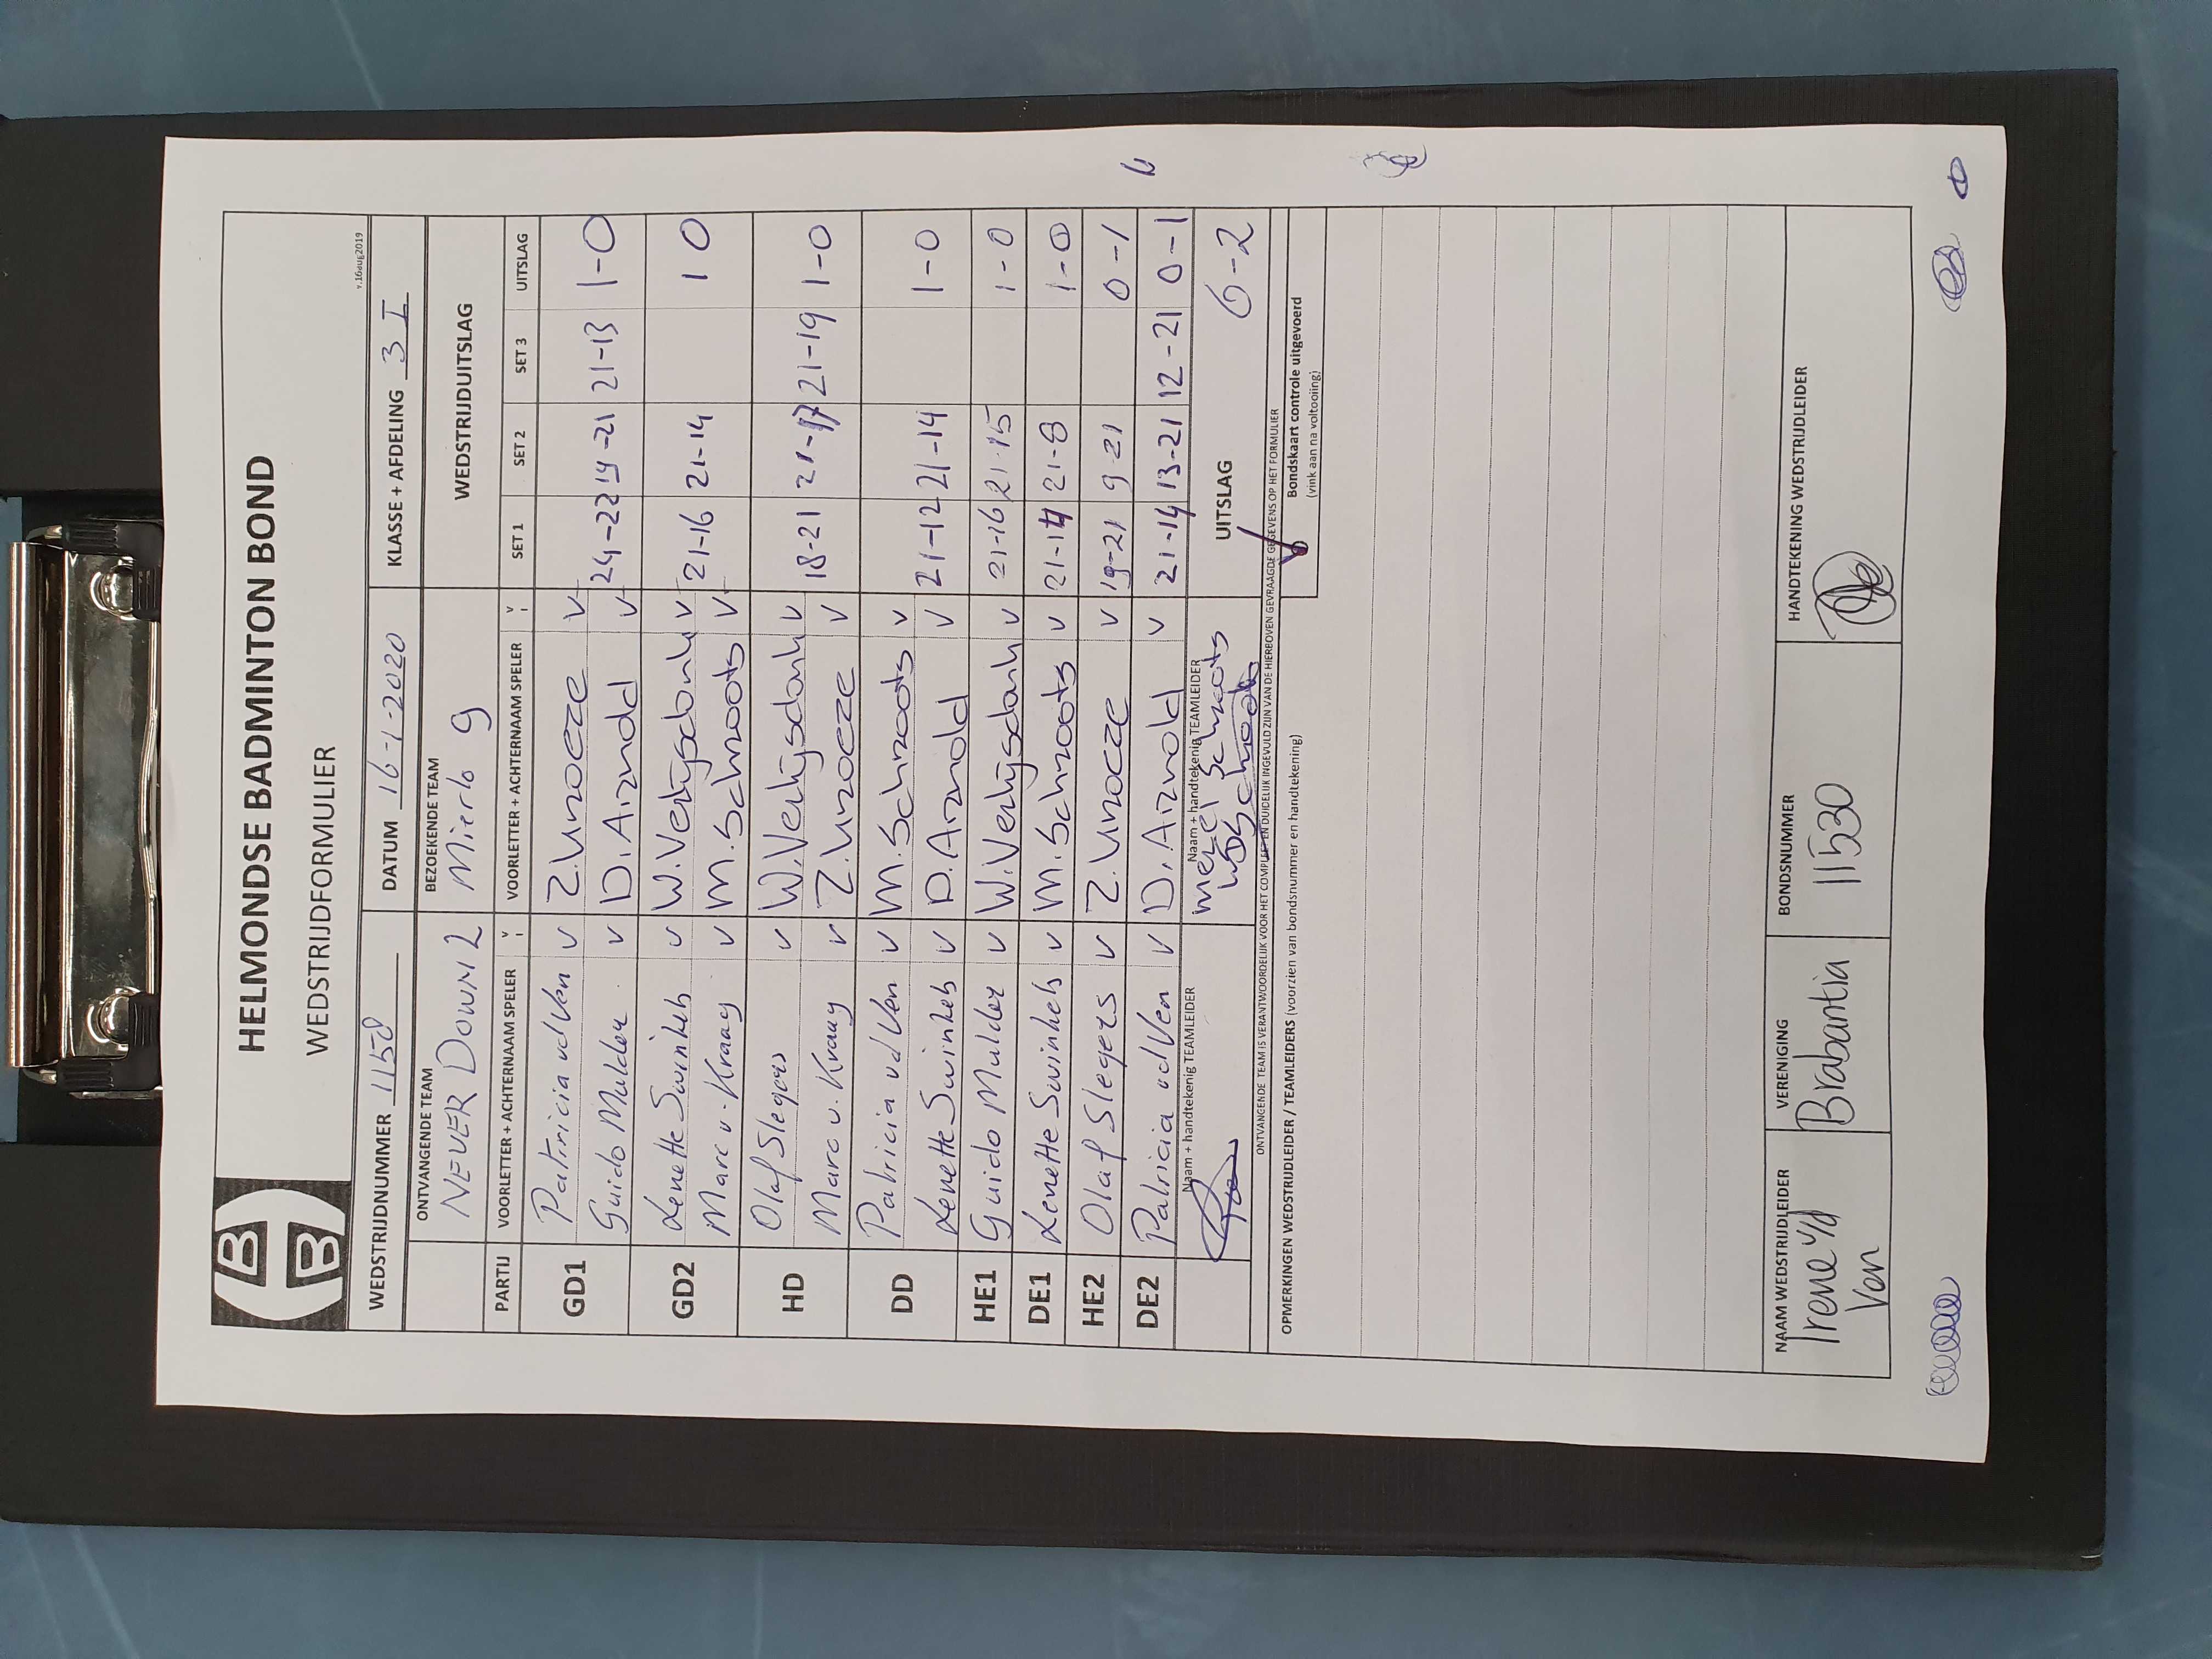 HELMONDSE BADMINTON BOND
WEDSTRIJDFORMULIER
v.16aug2019
WEDSTRIJDNUMMER 1158 DATUM 16-1-2020 KLASSE + AFDELING 3 I
ONTVANGENDE TEAM BEZOEKENDE TEAM WEDSTRIJDUITSLAG
NEVER DOWN 2 Mierlo 9
PARTIJ VOORLETTER + ACHTERNAAM SPELER V VOORLETTER + ACHTERNAAM SPELER V SET 1 SET 2 SET 3 UITSLAG
GD1 Patricia vd Ven V V
Guido Mulder V D. Arnold V 24-22 19-21 21-13 1-0
GD2 Lenette Swinkels V V
Marc v. Kraay V M. Schroots V 21-16 21-14 1 0
HD Olaf Slegers V V
Marc v. Kraay V V 18-21 21-17 21-19 1-0
DD Patricia vd Ven V M. Schroots V
Lenette Swinkels V D. Arnold V 21-12 21-14 1-0
HE1 Guido Mulder V V 21-16 21-15 1-0
DE1 Lenette Swinkels V M. Schroots V 21-8 1-0
HE2 Olaf Slegers V V 19-21 9-21 0-1
DE2 Patricia vd Ven V D. Arnold V 21-14 13-21 12-21 0-1
Naam + handtekenig TEAMLEIDER Naam + handtekenig TEAMLEIDER UITSLAG 6-2
Merel Schroots
ONTVANGENDE TEAM IS VERANTWOORDELIJK VOOR HET COMPLEET EN DUIDELIJK INGEVULD ZIJN VAN DE HIERBOVEN GEVRAAGDE GEGEVENS OP HET FORMULIER
OPMERKINGEN WEDSTRIJDLEIDER / TEAMLEIDERS (voorzien van bondsnummer en handtekening)
Bondskaart controle uitgevoerd
(vink aan na voltooiing)
NAAM WEDSTRIJDLEIDER VERENIGING BONDSNUMMER HANDTEKENING WEDSTRIJDLEIDER
Irene v/d
Ven Brabantia 11530